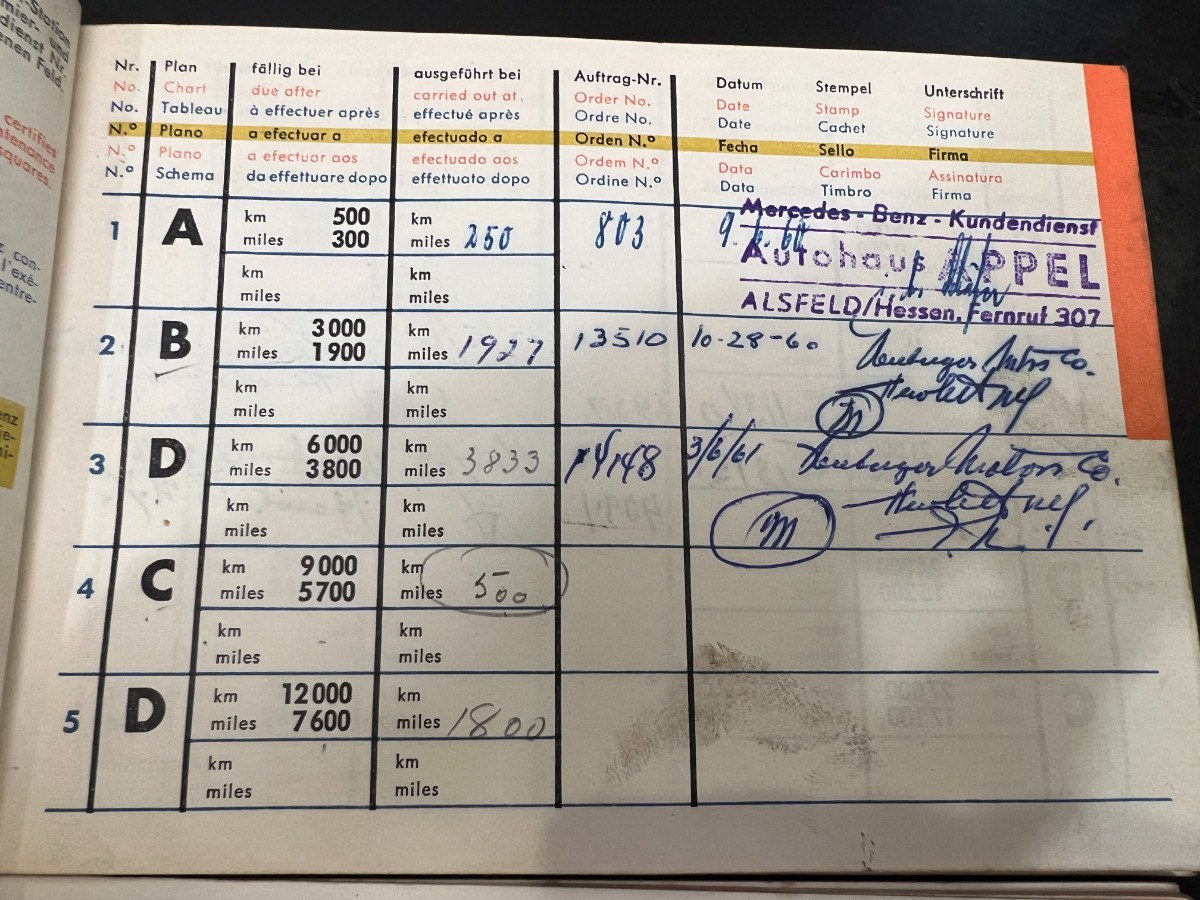 -Station
mier- und
dienst Nr.
enen Feld.
certifies
ntenance
squares.
con-
l'exé-
entre-
enz
Nr. Plan fällig bei ausgeführt bei Auftrag-Nr. Datum Stempel Unterschrift
No. Chart due after carried out at. Order No. Date Stamp Signature
No. Tableau à effectuer après effectué après Ordre No. Date Cachet Signature
N.º Plano a efectuar a efectuado a Orden N.º Fecha Sello Firma
N.º Plano a efectuar aos efectuado aos Ordem N.º Data Carimbo Assinatura
N.º Schema da effettuare dopo effettuato dopo Ordine N.º Data Timbro Firma
1 A km 500 km
miles 300 miles 250 803
Mercedes-Benz-Kundendienst
Autohaus APPEL
ALSFELD/Hessen, Fernruf 307
km km
miles miles
2 B km 3000 km
miles 1900 miles 1927 13510 10-28-60
Co.
km km
miles miles
M
3 D km 6000 km
miles 3800 miles 3833 14148 3/6/61 Motors Co.
km km
miles miles
M
4 C km 9000 km
miles 5700 miles 500
km km
miles miles
5 D km 12000 km
miles 7600 miles 1800
km km
miles miles